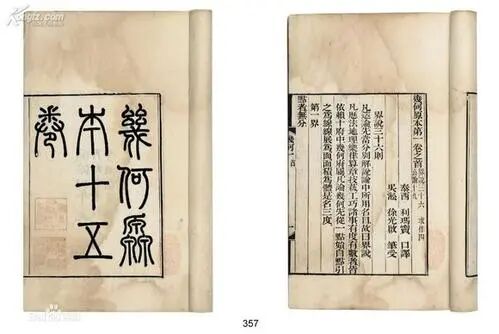 Kongfz.com
幾何原
本十五
卷
幾何原本第一卷之首 界說三十六 求作四 公論十九
泰西 利瑪竇 口譯
吳淞 徐光啟 筆受
界說三十六則
凡造論先當分別解說論中所用名目故曰界說
凡歷法地理樂律算章技藝工巧諸事有度有數者皆
依賴十府中幾何府屬凡論幾何先從一點始自點引
之為線線展為面面積為體是名三度
第一界
點者無分
357